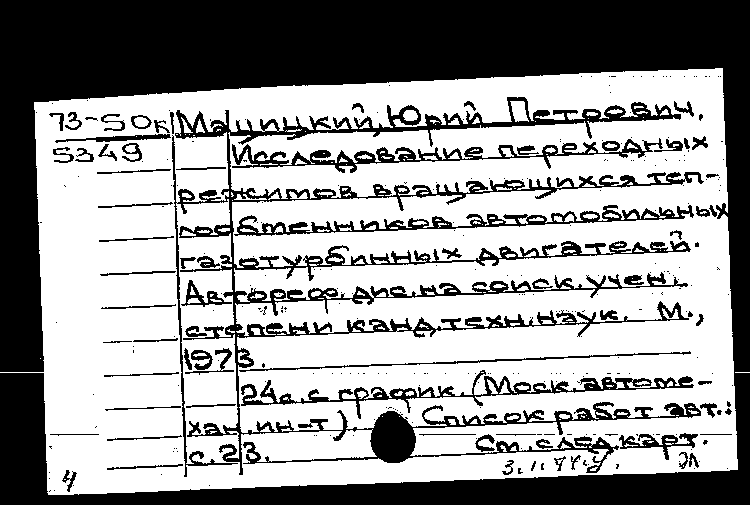 73-50к Мацицкий, Юрий Петрович.
5349 Исследование переходных
режимов вращающихся теп-
лообменников автомобильных
газотурбинных двигателей.
Автореф. дис. на соиск. учен.
степени канд. техн. наук. М.,
1973.
24 с. с график. (Моск. автоме-
хан. ин-т). Список работ авт.:
с. 23. См. след. карт.
4